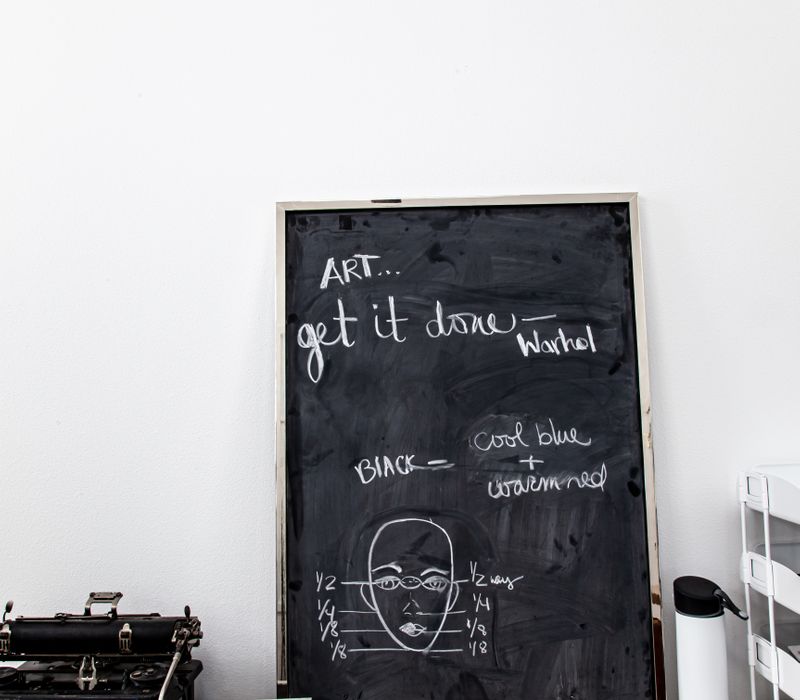 ART...
get it done —
Warhol
cool blue
BLACK = +
warm red
1/2 1/2 way
1/4 1/4
1/8 1/8
1/8 1/8